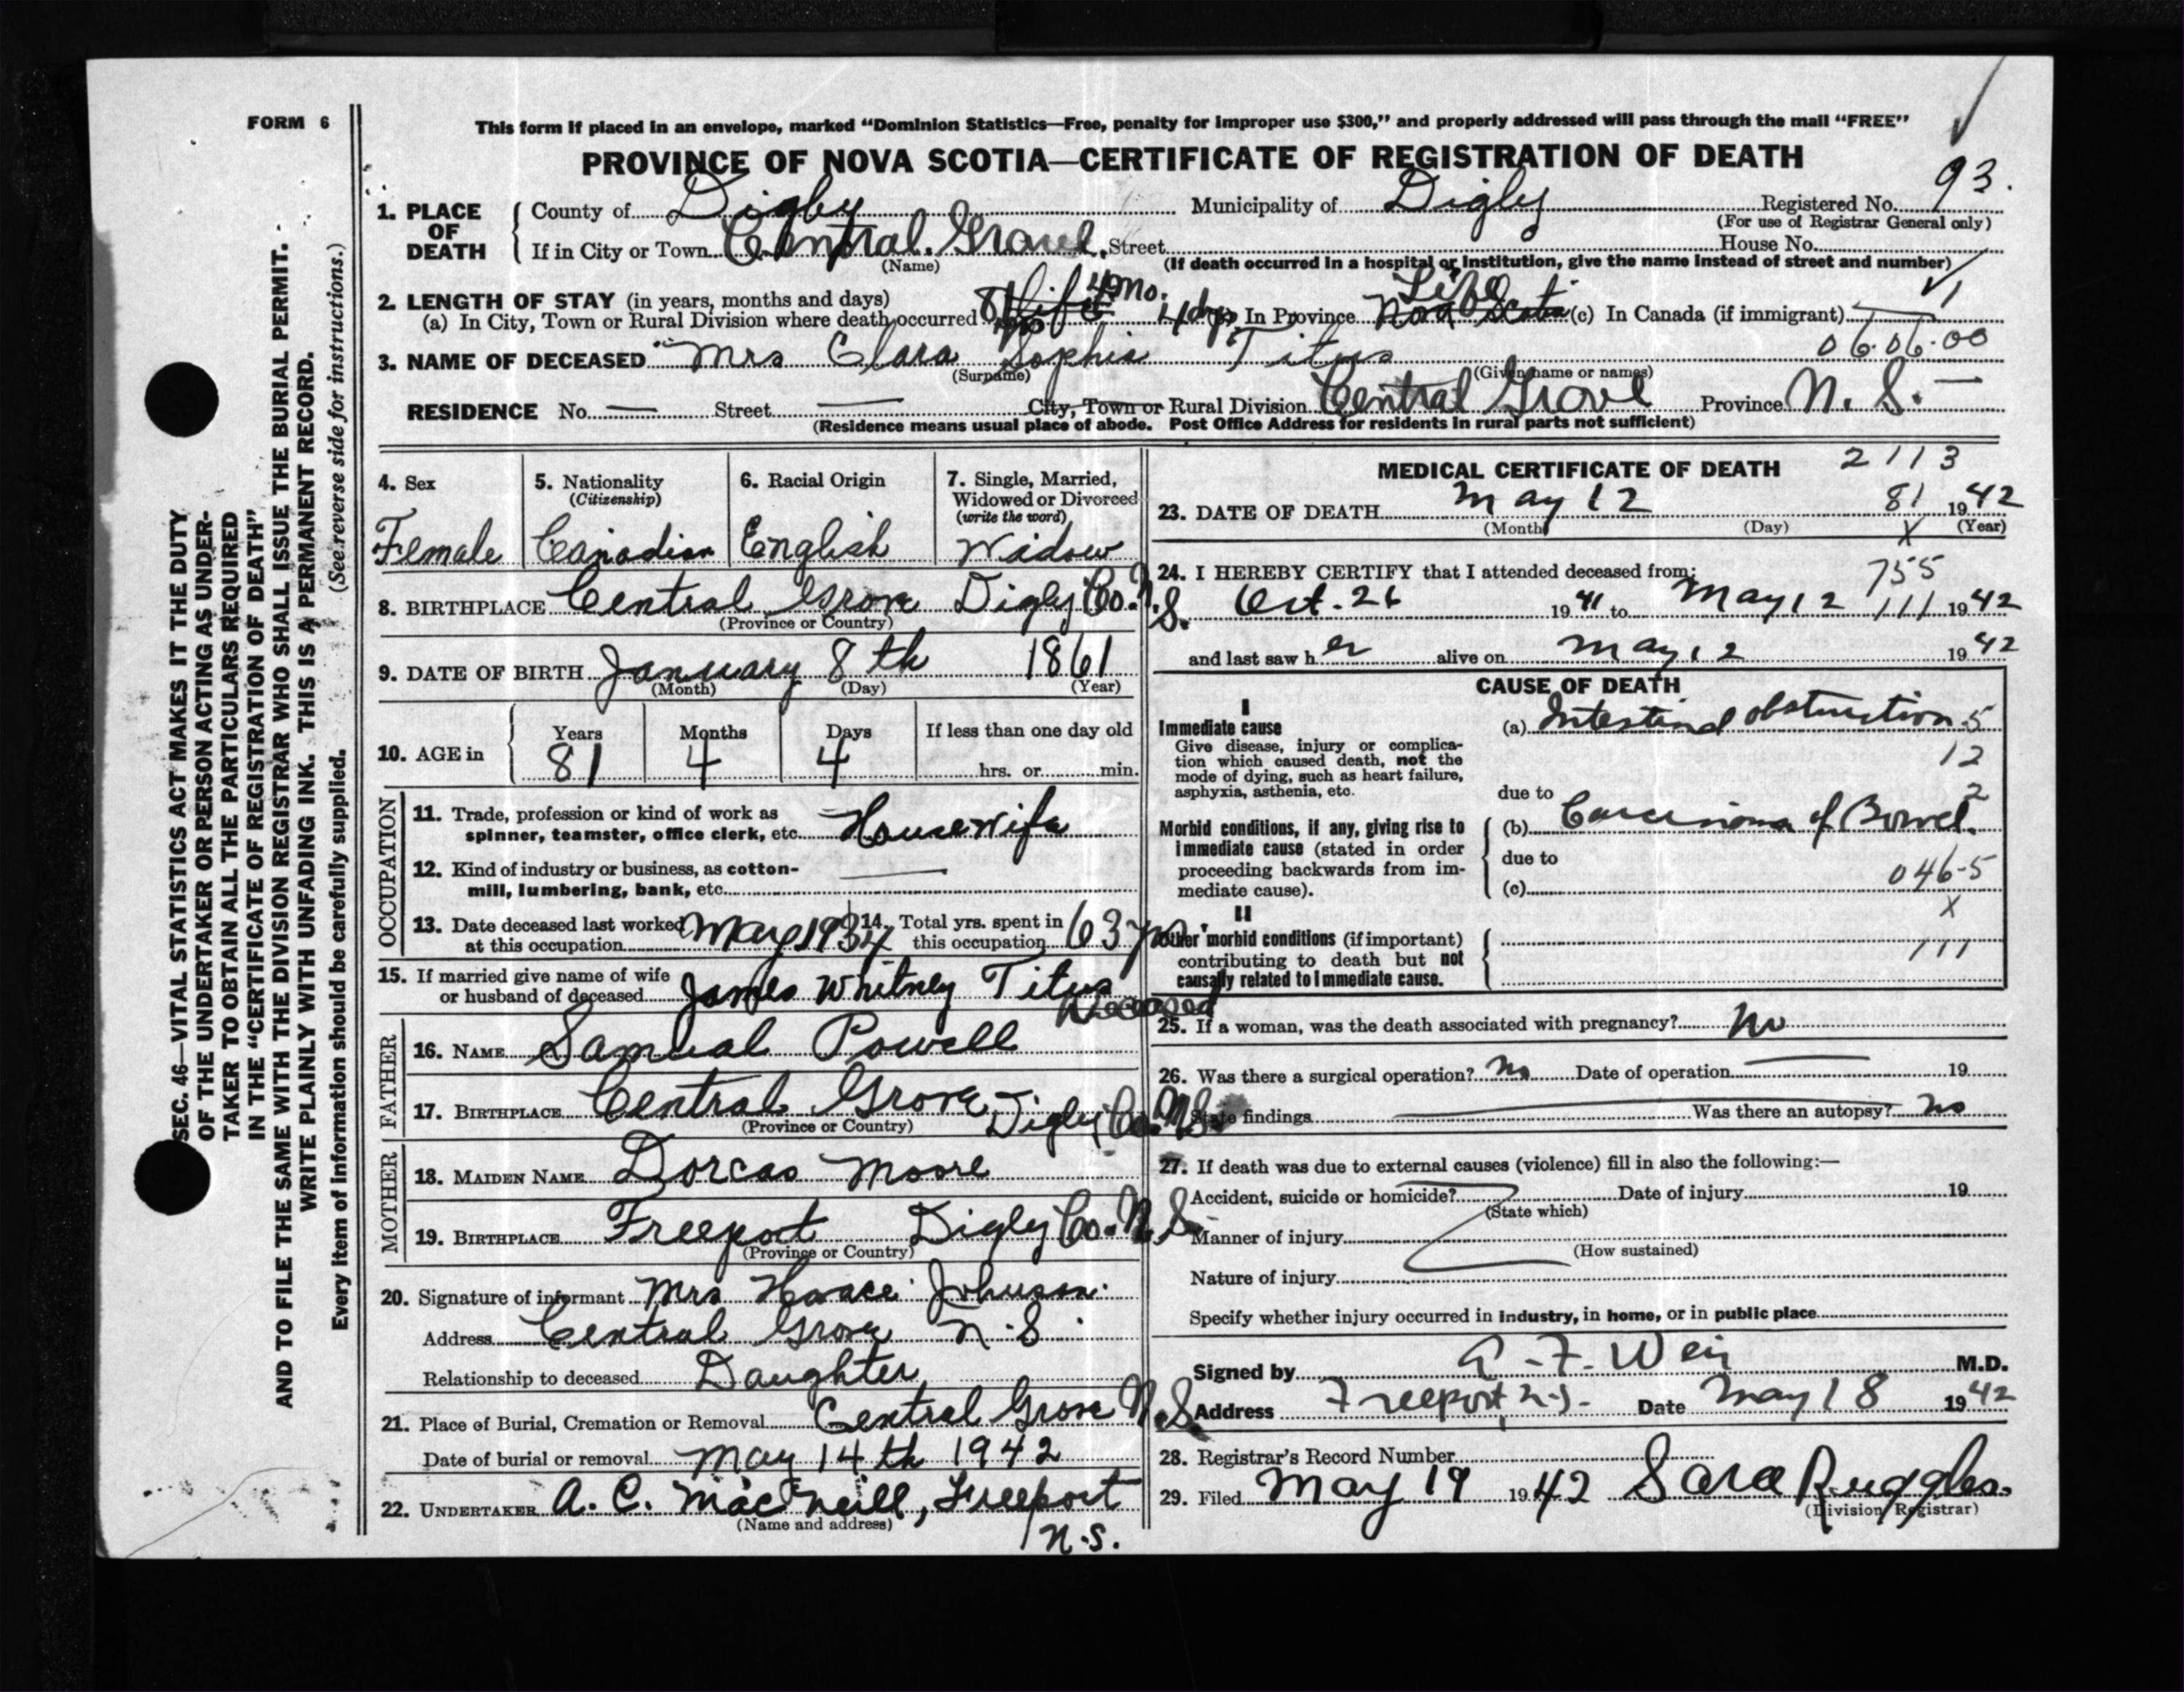 FORM 6
This form if placed in an envelope, marked “Dominion Statistics—Free, penalty for improper use $300,” and properly addressed will pass through the mail “FREE”
PROVINCE OF NOVA SCOTIA—CERTIFICATE OF REGISTRATION OF DEATH
93.
1. PLACE OF DEATH
County of Digby Municipality of Digby Registered No.
(For use of Registrar General only)
If in City or Town Central Grove, Street House No.
(Name)
(If death occurred in a hospital or institution, give the name instead of street and number)
2. LENGTH OF STAY (in years, months and days)
(a) In City, Town or Rural Division where death occurred 4 Mo. 4 dys In Province Life Nova Scotia (c) In Canada (if immigrant)
06.06.00
3. NAME OF DECEASED Mrs Clara Sophia Titus
(Surname) (Given name or names)
RESIDENCE No. — Street — City, Town or Rural Division Central Grove Province N. S. —
(Residence means usual place of abode. Post Office Address for residents in rural parts not sufficient)
4. Sex
Female
5. Nationality
(Citizenship)
Canadian
6. Racial Origin
English
7. Single, Married,
Widowed or Divorced
(write the word)
Widow
8. BIRTHPLACE Central Grove Digby Co. N.S.
(Province or Country)
9. DATE OF BIRTH January 8th 1861
(Month) (Day) (Year)
10. AGE in
Years Months Days If less than one day old
81 4 4 hrs. or min.
OCCUPATION
11. Trade, profession or kind of work as
spinner, teamster, office clerk, etc. Housewife
12. Kind of industry or business, as cotton-
mill, lumbering, bank, etc. —
13. Date deceased last worked
at this occupation May 1934
14. Total yrs. spent in
this occupation 63 yrs
15. If married give name of wife
or husband of deceased James Whitney Titus
Deceased
FATHER
16. NAME Samual Powell
17. BIRTHPLACE Central Grove Digby Co. N.S.
(Province or Country)
MOTHER
18. MAIDEN NAME Dorcas Moore
19. BIRTHPLACE Freeport Digby Co. N.S.
(Province or Country)
20. Signature of informant Mrs Horace Johnson
Address Central Grove N.S.
Relationship to deceased Daughter
21. Place of Burial, Cremation or Removal Central Grove N.S
Date of burial or removal May 14th 1942
22. UNDERTAKER A. C. MacNeill, Freeport
(Name and address)
N.S.
MEDICAL CERTIFICATE OF DEATH 2113
23. DATE OF DEATH May 12 81 1942
(Month) (Day) X (Year)
24. I HEREBY CERTIFY that I attended deceased from:
755
Oct. 26 1941 to May 12 111 1942
and last saw her alive on May 12 1942
CAUSE OF DEATH
I
Immediate cause
Give disease, injury or complica-
tion which caused death, not the
mode of dying, such as heart failure,
asphyxia, asthenia, etc.
(a) Intestinal obstruction 5
12
2
due to
Morbid conditions, if any, giving rise to
immediate cause (stated in order
proceeding backwards from im-
mediate cause).
(b) Carcinoma of Bowel.
due to
046-5
(c)
X
II
Other morbid conditions (if important)
contributing to death but not
causally related to immediate cause.
111
25. If a woman, was the death associated with pregnancy? No
26. Was there a surgical operation? No Date of operation — 19
State findings Was there an autopsy? No
27. If death was due to external causes (violence) fill in also the following:—
Accident, suicide or homicide? Date of injury 19
(State which)
Manner of injury
(How sustained)
Nature of injury
Specify whether injury occurred in industry, in home, or in public place
Signed by A. F. Weir M.D.
Address Freeport, N.S. Date May 18 1942
28. Registrar's Record Number
29. Filed May 19 1942 Sara Ruggles.
(Division Registrar)
SEC. 46—VITAL STATISTICS ACT MAKES IT THE DUTY
OF THE UNDERTAKER OR PERSON ACTING AS UNDER-
TAKER TO OBTAIN ALL THE PARTICULARS REQUIRED
IN THE “CERTIFICATE OF REGISTRATION OF DEATH”
AND TO FILE THE SAME WITH THE DIVISION REGISTRAR WHO SHALL ISSUE THE BURIAL PERMIT.
WRITE PLAINLY WITH UNFADING INK. THIS IS A PERMANENT RECORD.
Every item of information should be carefully supplied. (See reverse side for instructions.)